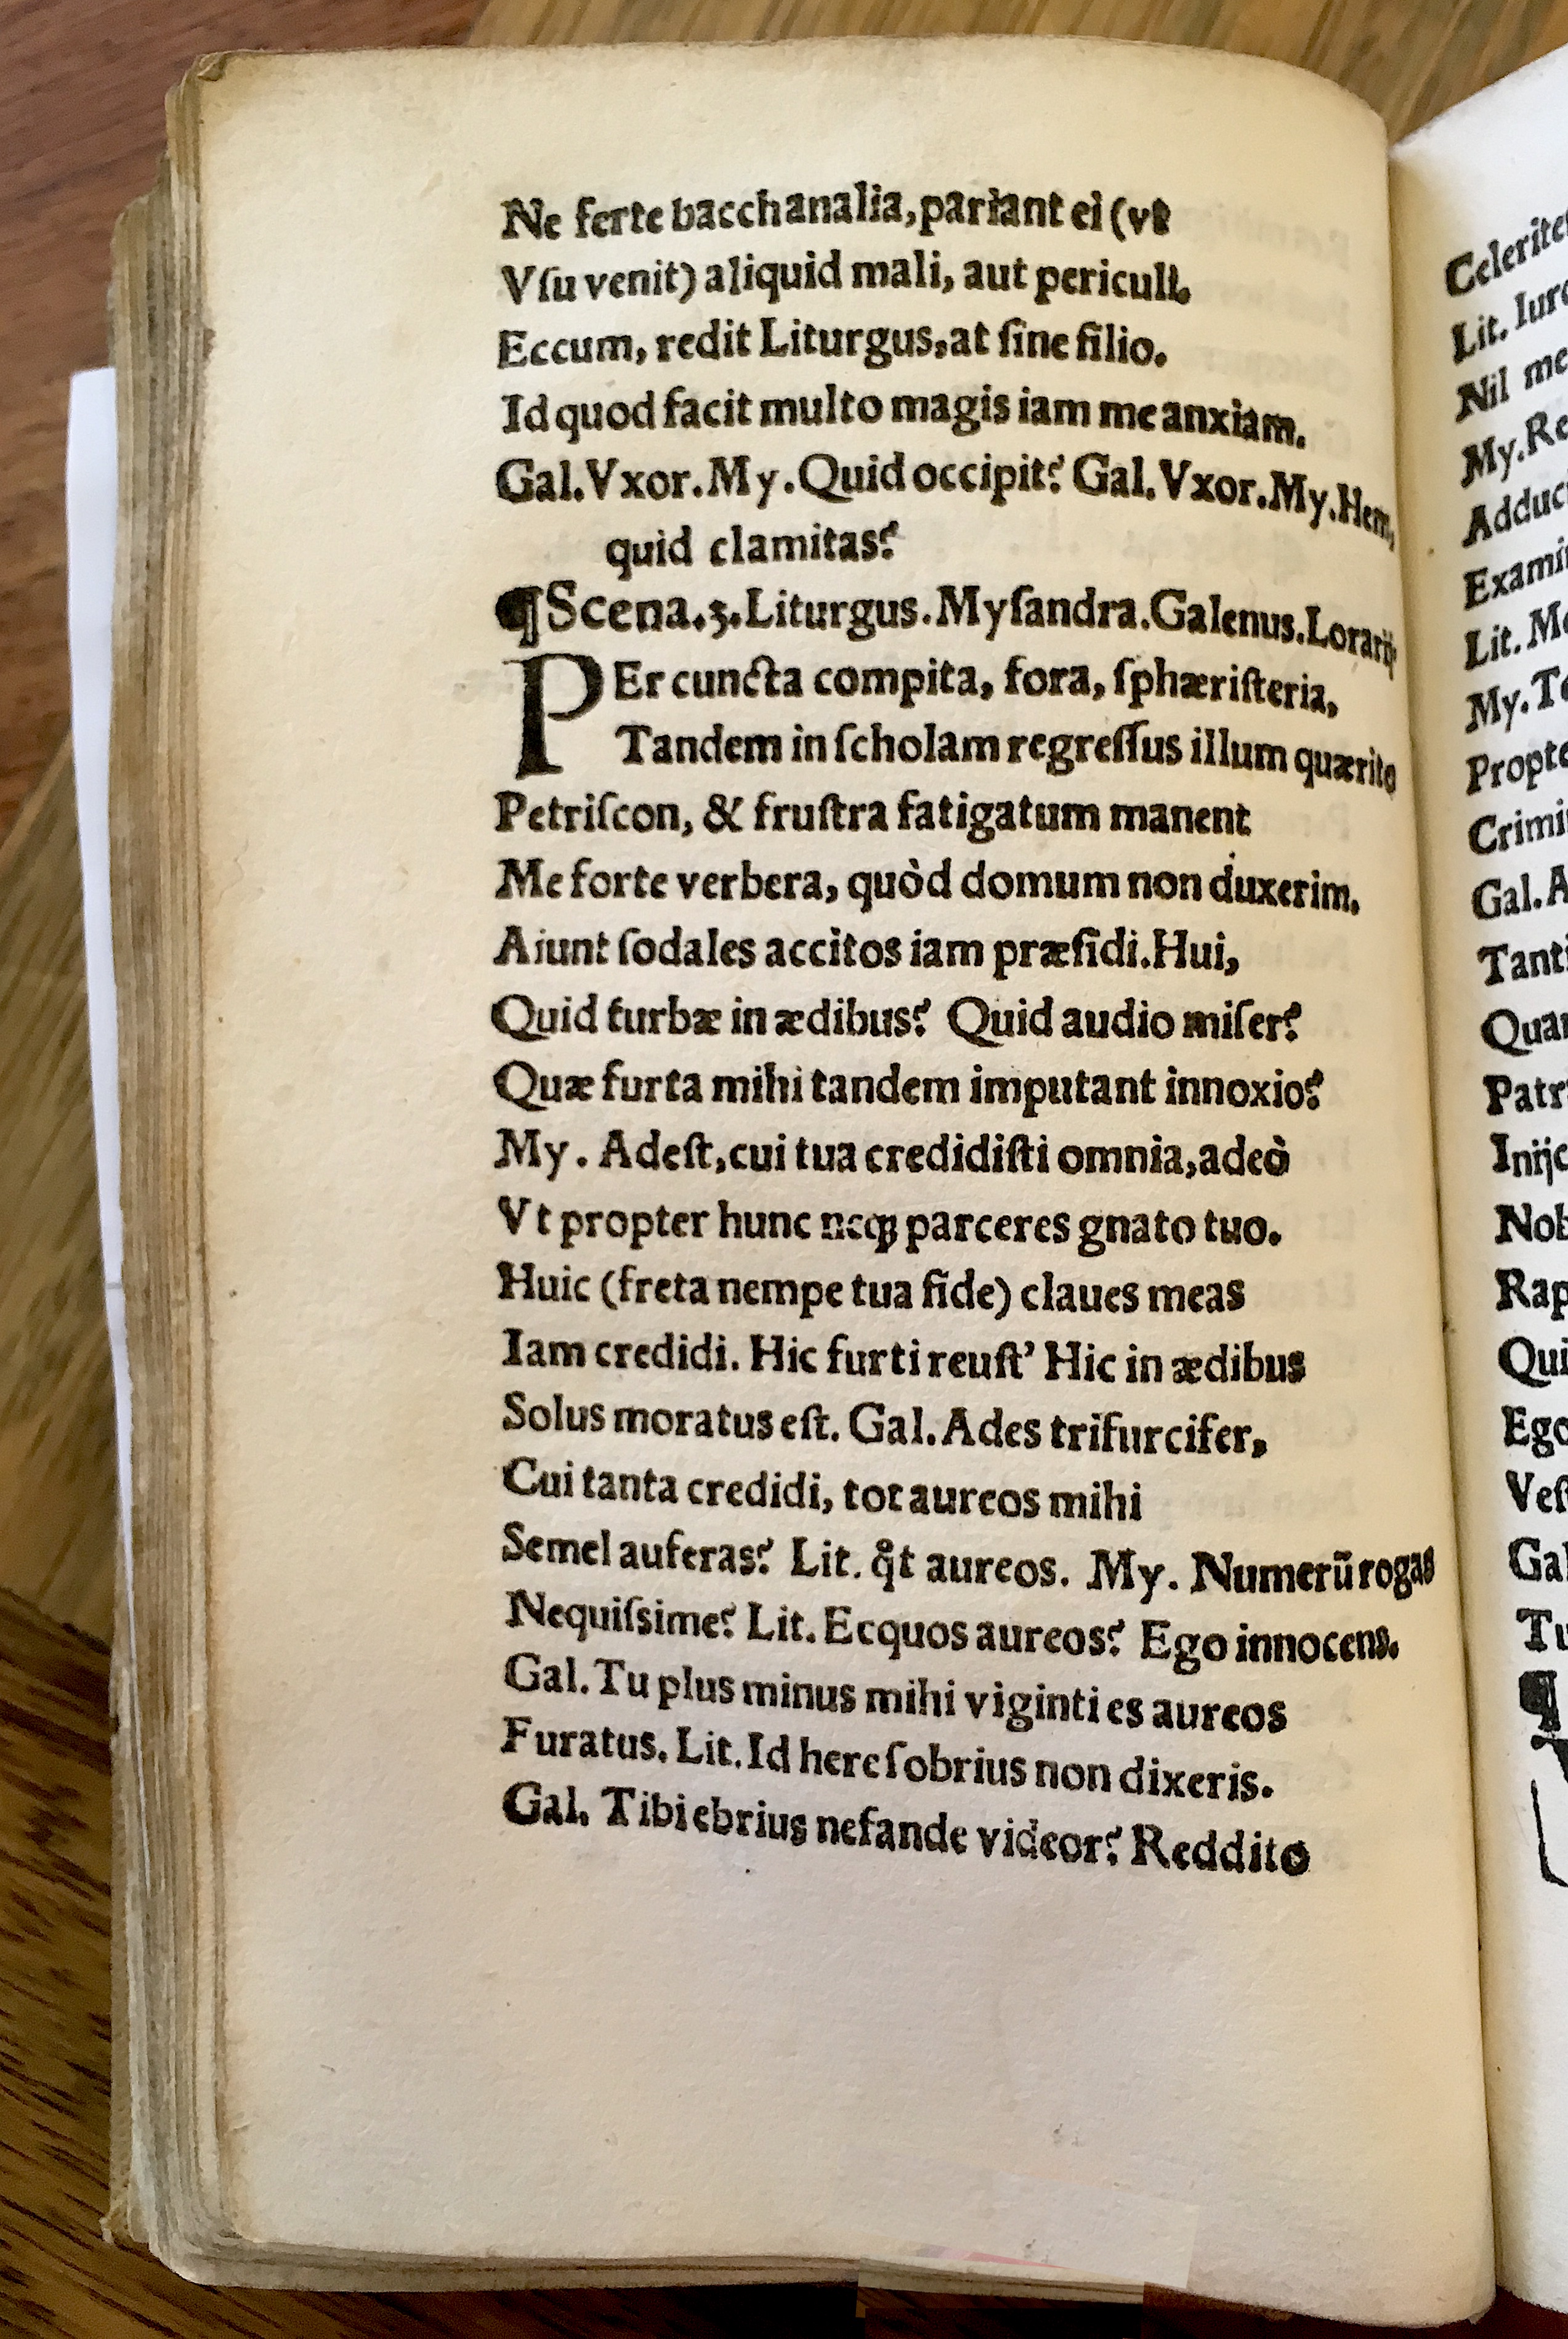 Ne ferte bacchanalia, pariant ei (vt
Vſu venit) aliquid mali, aut periculi.
Eccum, redit Liturgus, at ſine filio.
Id quod facit multo magis iam me anxiam.
Gal. Vxor. My. Quid occipit? Gal. Vxor. My. Hem,
quid clamitas?
¶ Scena. 3. Liturgus. Myſandra. Galenus. Lorarij
PEr cuncta compita, fora, ſphæriſteria,
Tandem in ſcholam regreſſus illum quærito
Petriſcon, & fruſtra fatigatum manent
Me forte verbera, quòd domum non duxerim.
Aiunt ſodales accitos iam præſidi. Hui,
Quid turbæ in ædibus? Quid audio miſer?
Quæ furta mihi tandem imputant innoxio?
My. Adeſt, cui tua credidiſti omnia, adeò
Vt propter hunc neqꝫ parceres gnato tuo.
Huic (freta nempe tua fide) claues meas
Iam credidi. Hic furti reuſt' Hic in ædibus
Solus moratus eſt. Gal. Ades trifurcifer,
Cui tanta credidi, tot aureos mihi
Semel auferas? Lit. q̊t aureos. My. Numerũ rogas
Nequiſsime? Lit. Ecquos aureos? Ego innocens.
Gal. Tu plus minus mihi viginti es aureos
Furatus. Lit. Id here ſobrius non dixeris.
Gal. Tibi ebrius nefande videor? Reddito
Lit.
Nil
My.
Lit.
My.
Gal. A